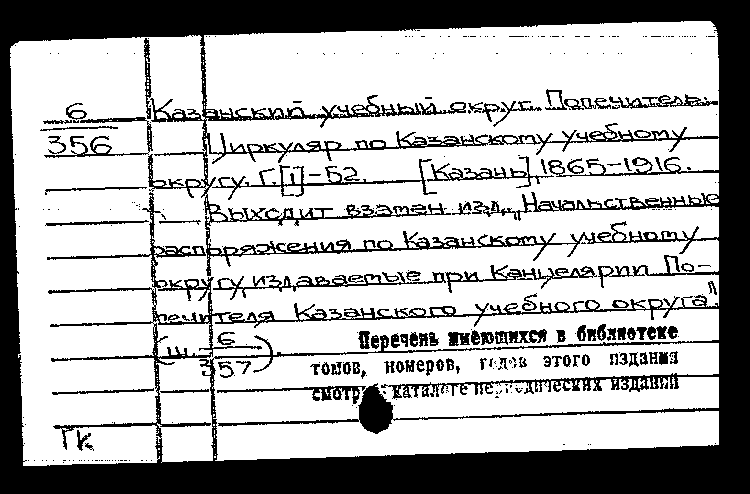 6 Казанский учебный округ. Попечитель.
356 Циркуляр по Казанскому учебному
округу. Г. [1]-52. [Казань], 1865-1916.
Выходит взамен изд. „Начальственные
распоряжения по Казанскому учебному
округу, издаваемые при Канцелярии По-
печителя Казанского учебного округа".
(ш. 6/357).
Перечень имеющихся в библиотеке
томов, номеров, годов этого издания
смотри в каталоге периодических изданий
ГК